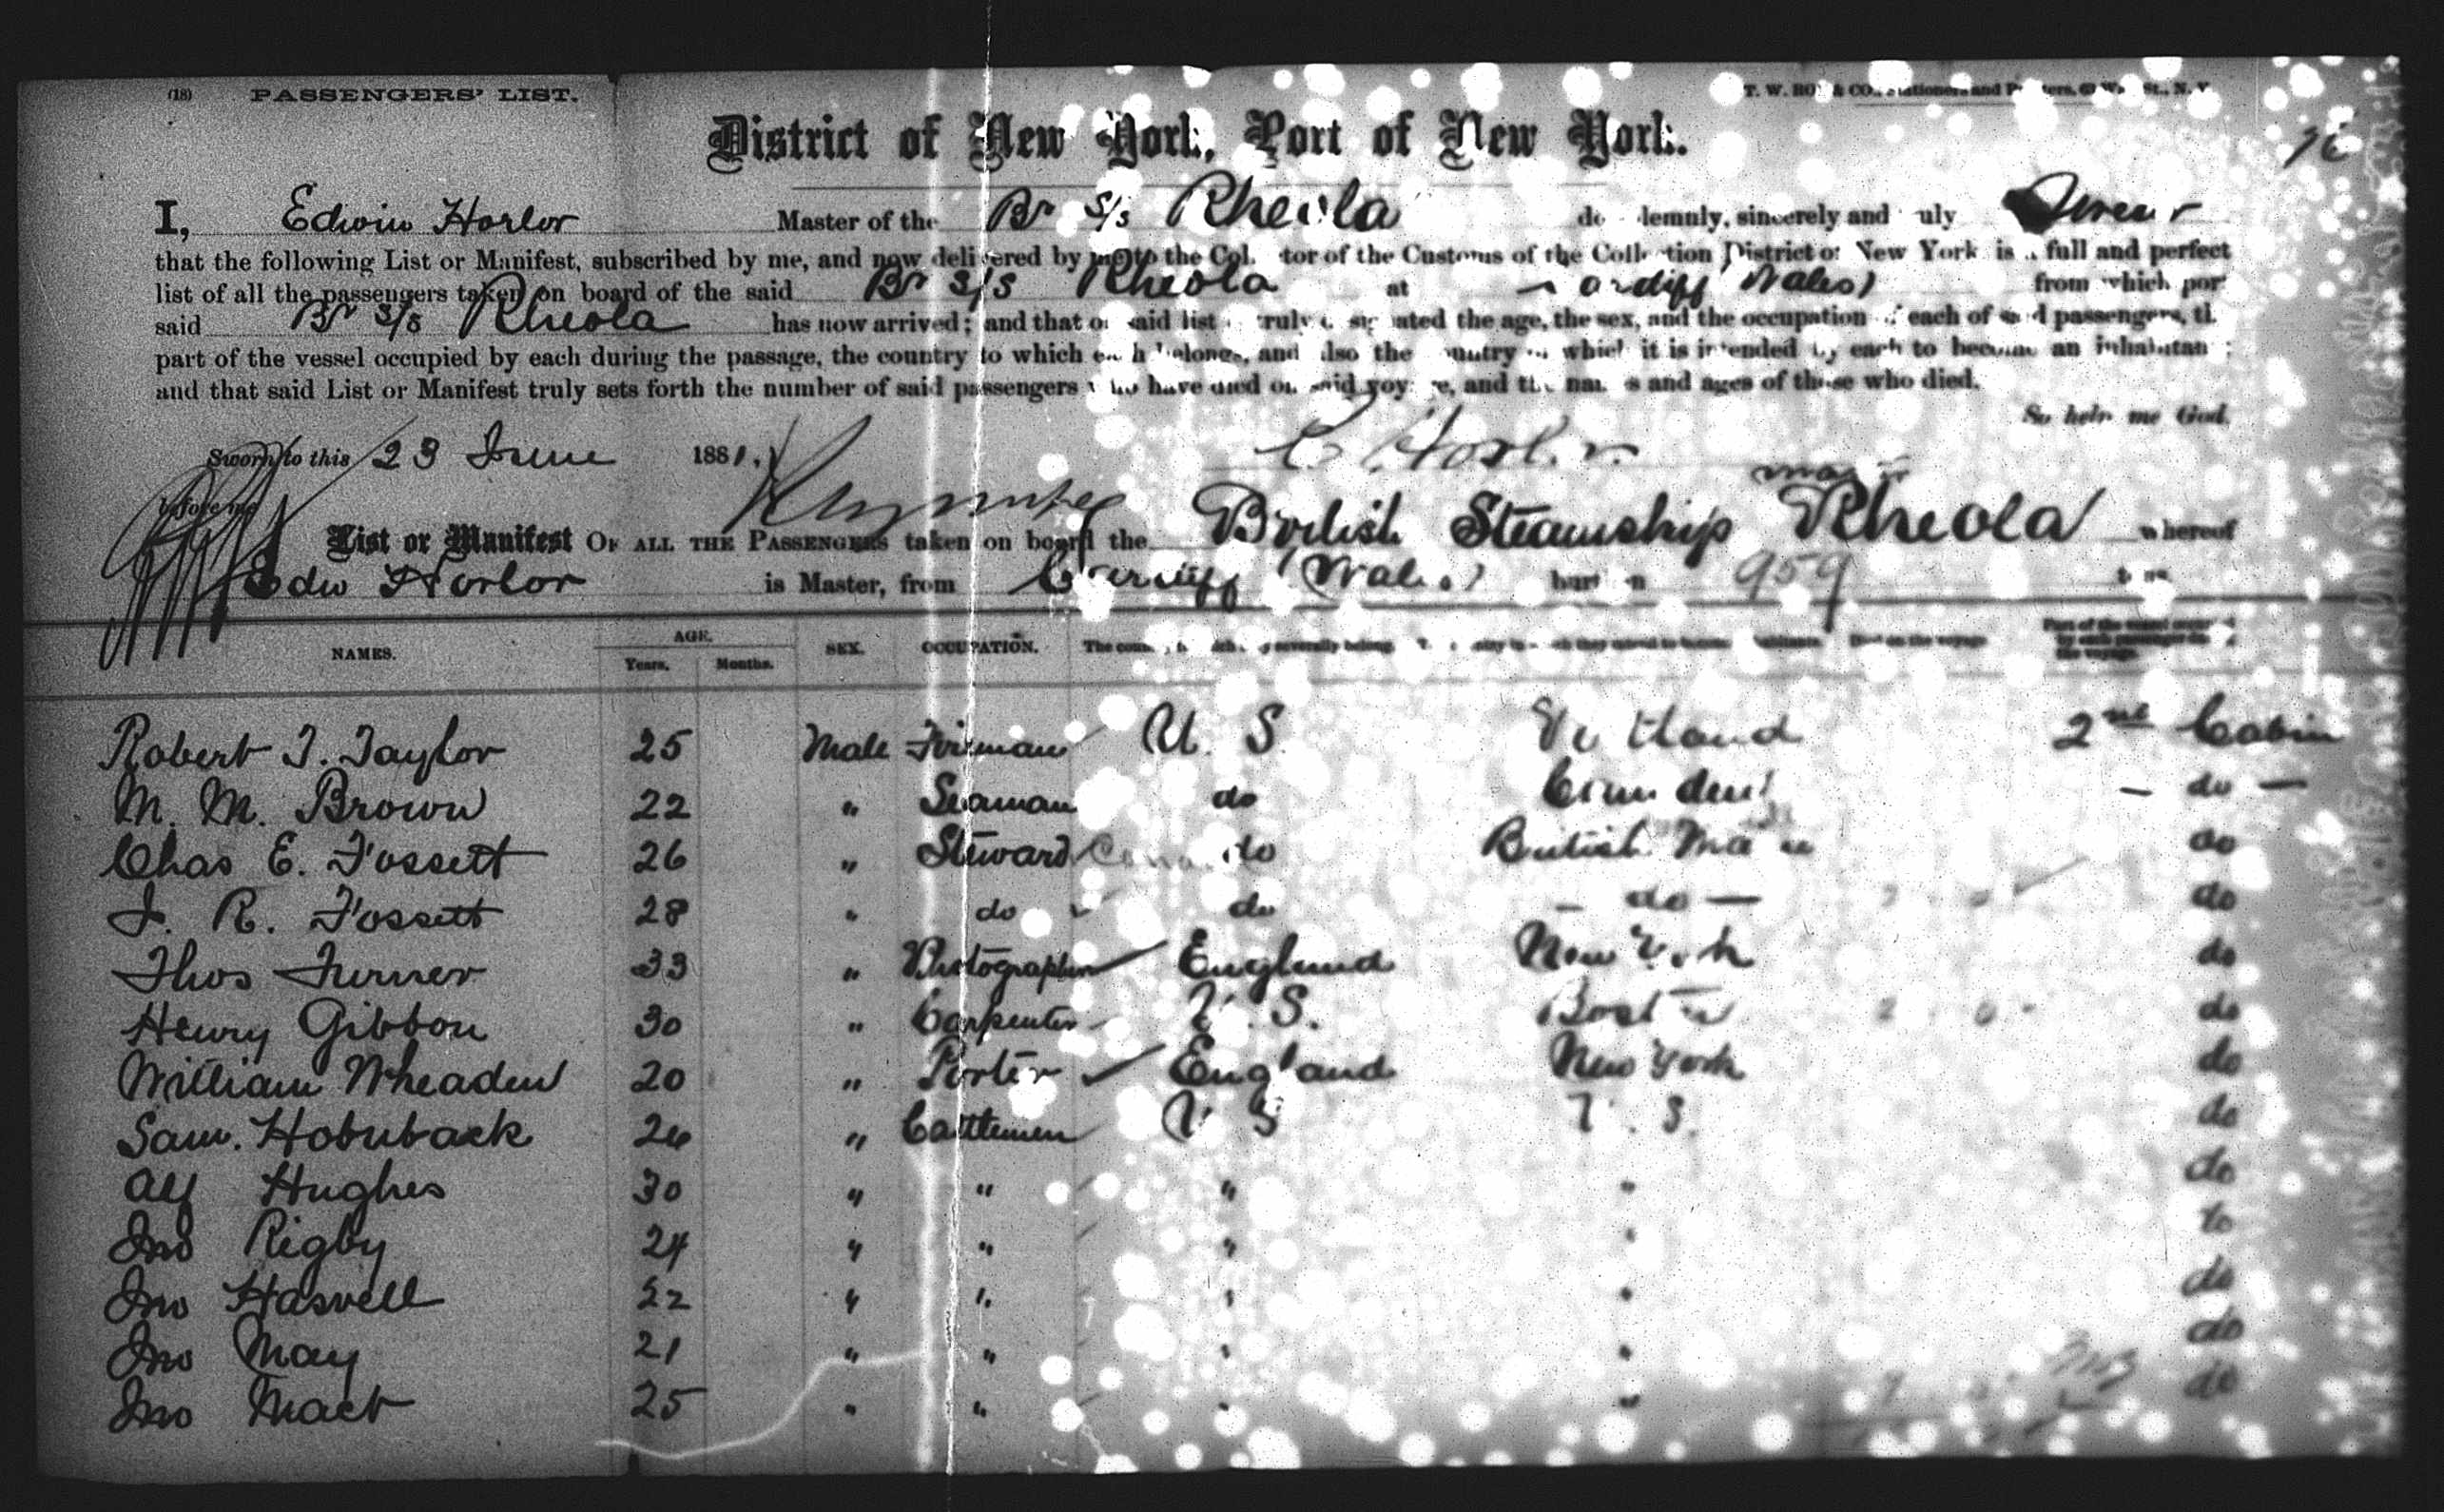 (18) PASSENGERS' LIST.
District of New York, Port of New York.
I, Edwin Horlor Master of the Br S/S Rheola do lemnly, sincerely and uly Swear
that the following List or Manifest, subscribed by me, and now delivered by me to the Col tor of the Customs of the Collection District of New York is a full and perfect
list of all the passengers taken on board of the said Br S/S Rheola at ardiff Wales) from which por
said Br S/S Rheola has now arrived; and that on said list truly ated the age, the sex, and the occupation of each of said passengers, th
part of the vessel occupied by each during the passage, the country to which each belongs, and also the country of which it is intended by each to become an inhabitan ;
and that said List or Manifest truly sets forth the number of said passengers who have died on said voyage, and the names and ages of those who died.
So help me God.
Sworn to this 23 June 1881, E Horlor
before me
List or Manifest OF ALL THE PASSENGERS taken on board the British Steamship Rheola whereof
Edw Horlor is Master, from Cardiff (Wales) burthen 959 tons
NAMES. AGE. Years. Months. SEX. OCCUPATION. The country to which they severally belong. Died on the voyage.
Robert T. Taylor 25 Male Fireman U. S. 2nd Cabin
M. M. Brown 22 " Seaman do Camden - do -
Chas E. Fossett 26 " Steward do British do
J. R. Fossett 28 " do do - do - do
Thos Turner 33 " Photographer England New York do
Henry Gibbon 30 " Carpenter U. S. Boston do
William Wheaden 20 " Porter England New York do
Sam. Hobuback 26 " Cattlemen U S U. S. do
Alf Hughes 30 " " " " do
Jno Rigby 24 " " " " do
Jno Hasvell 22 " " " " do
Jno May 21 " " " " do
Jno Mact 25 " " " " do